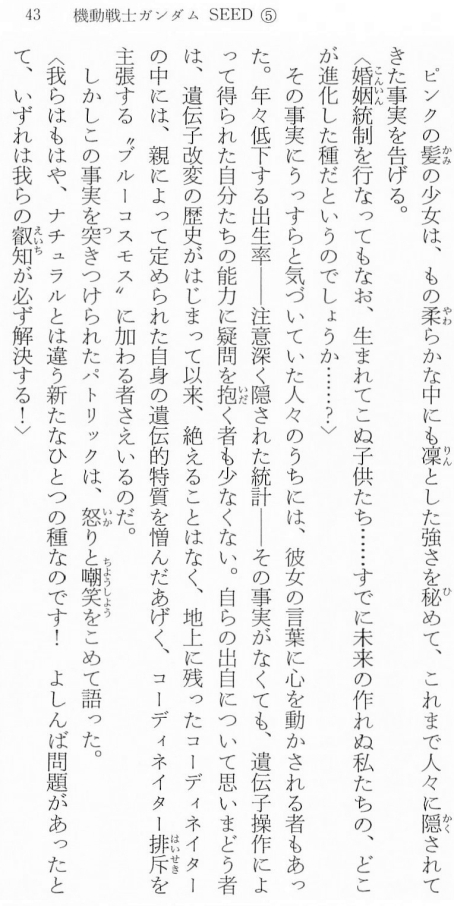 43　機動戦士ガンダム SEED ⑤
　ピンクの髪の少女は、もの柔らかな中にも凜とした強さを秘めて、これまで人々に隠されて
きた事実を告げる。
〈婚姻統制を行なってもなお、生まれてこぬ子供たち……すでに未来の作れぬ私たちの、どこ
が進化した種だというのでしょうか……？〉
　その事実にうっすらと気づいていた人々のうちには、彼女の言葉に心を動かされる者もあっ
た。年々低下する出生率――注意深く隠された統計――その事実がなくても、遺伝子操作によ
って得られた自分たちの能力に疑問を抱く者も少なくない。自らの出自について思いまどう者
は、遺伝子改変の歴史がはじまって以来、絶えることはなく、地上に残ったコーディネイター
の中には、親によって定められた自身の遺伝的特質を憎んだあげく、コーディネイター排斥を
主張する〝ブルーコスモス〟に加わる者さえいるのだ。
　しかしこの事実を突きつけられたパトリックは、怒りと嘲笑をこめて語った。
〈我らはもはや、ナチュラルとは違う新たなひとつの種なのです！　よしんば問題があったと
て、いずれは我らの叡知が必ず解決する！〉